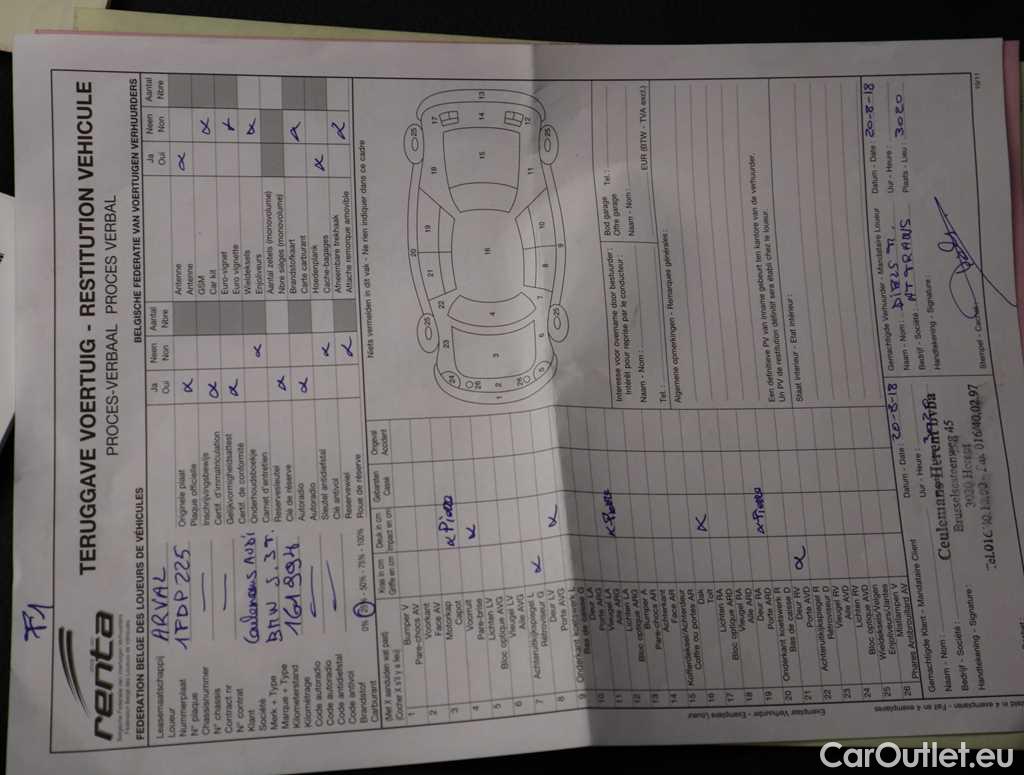 F1
renta
TERUGGAVE VOERTUIG - RESTITUTION VEHICULE
PROCES-VERBAAL PROCES VERBAL
FEDERATION BELGE DES LOUEURS DE VÉHICULES
BELGISCHE FEDERATIE VAN VOERTUIGEN VERHUURDERS
Leasemaatschappij
Loueur
ARVAL
Nummerplaat
N° plaque
1FDP225
Chassisnummer
N° chassis
Contract nr
N° contrat
Klant
Société
Merk + Type
Marque + Type
BMW
Kilometerstand
Kilométrage
161994
Code autoradio
Code autoradio
Code antidiefstal
Code antivol
Brandstof
Carburant
0% - 50% - 75% - 100%
Ja
Oui
Neen
Non
Aantal
Nbre
Originele plaat
Plaque officielle
Inschrijvingsbewijs
Certif. d'immatriculation
Gelijkvormigheidsattest
Certif. de conformité
Onderhoudsboekje
Carnet d'entretien
Reservesleutel
Clé de réserve
Autoradio
Autoradio
Sleutel antidiefstal
Clé antivol
Reservewiel
Roue de réserve
Ja
Oui
Neen
Non
Aantal
Nbre
Antenne
Antenne
GSM
Car kit
Euro-vignet
Euro vignette
Wieldeksels
Enjoliveurs
Aantal zetels (monovolume)
Nbre sièges (monovolume)
Brandstofkaart
Carte carburant
Hoedenplank
Cache-bagages
Afneembare trekhaak
Attache remorque amovible
Niets vermelden in dit vak - Ne rien indiquer dans ce cadre
(Met X aanduiden wat past)
(Cocher X s'il y a lieu)
Kras in cm
Griffe en cm
Deuk in cm
Impact en cm
Gebarsten
Cassé
Ongeval
Accident
1 Bumper V
Pare-chocs AV
2 Voorkant
Face AV
3 Motorkap
Capot
4 Voorruit
Pare-brise
5 Lichten LV
Bloc optique AVG
6 Vleugel LV
Aile AVG
7 Achteruitkijkspiegel L
Rétroviseur G
8 Deur LV
Porte AVG
9 Onderkant koetswerk L
Bas de caisse G
10 Deur LA
Porte ARG
11 Vleugel LA
Aile ARG
12 Lichten LA
Bloc optique ARG
13 Bumper A
Pare-chocs AR
14 Achterkant
Face AR
15 Kofferdeksel/Achterdeur
Coffre ou portes AR
16 Dak
Toit
17 Lichten RA
Bloc optique ARD
18 Vleugel RA
Aile ARD
19 Deur RA
Porte ARD
20 Onderkant koetswerk R
Bas de caisse D
21 Deur RV
Porte AVD
22 Achteruitkijkspiegel R
Rétroviseur D
23 Vleugel RV
Aile AVD
24 Lichten RV
Bloc optique AVD
25 Wieldeksels/Velgen
Enjoliveurs/Jantes
26 Mistlampen V
Phares Antibrouillard AV
Interesse voor overname door bestuurder :
Intérêt pour reprise par le conducteur :
Naam - Nom :
Tel. :
Bod garage
Offre garage
Tel. :
Naam - Nom :
EUR (BTW - TVA excl.)
Algemene opmerkingen - Remarques générales :
Een definitieve PV van inname gebeurt ten kantore van de verhuurder.
Un PV de restitution définitif sera établi chez le loueur.
Staat interieur - Etat intérieur :
Gemachtigde Klant - Mandataire Client
Datum - Date : 20-8-18
Naam - Nom :
Uur - Heure :
Bedrijf - Société :
Handtekening - Signature :
Ceulemans Herent bvba
Brusselsesteenweg 45
3020 Herent
Gemachtigde Verhuurder - Mandataire Loueur
Datum - Date : 20-8-18
Naam - Nom :
Uur - Heure :
Bedrijf - Société : AT TRANS
Plaats - Lieu : 3020
Handtekening - Signature :
Stempel - Cachet :
Exemplaar Verhuurder - Exemplaire Loueur
10/11
CarOutlet.eu